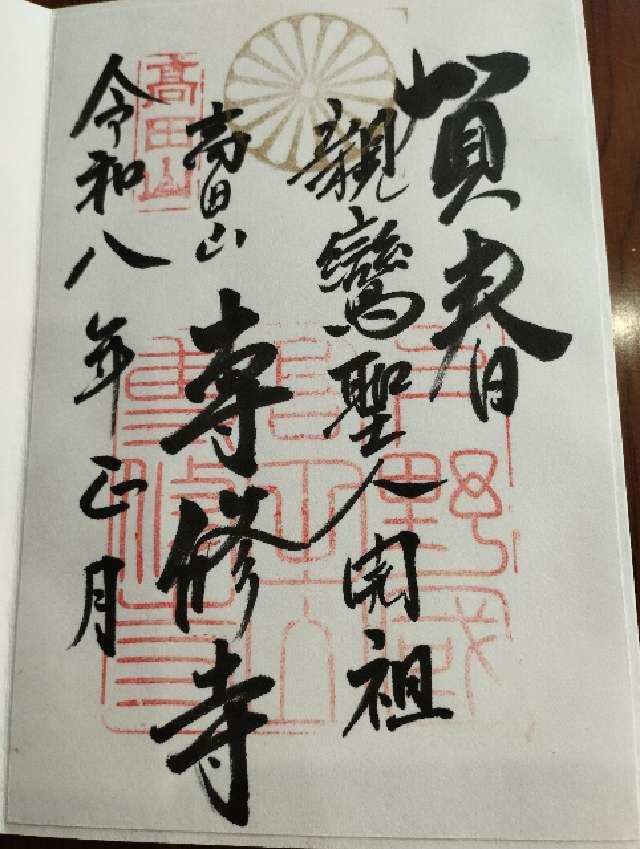 賀春
親鸞聖人開祖
高田山
専修寺
令和八年正月
高田山